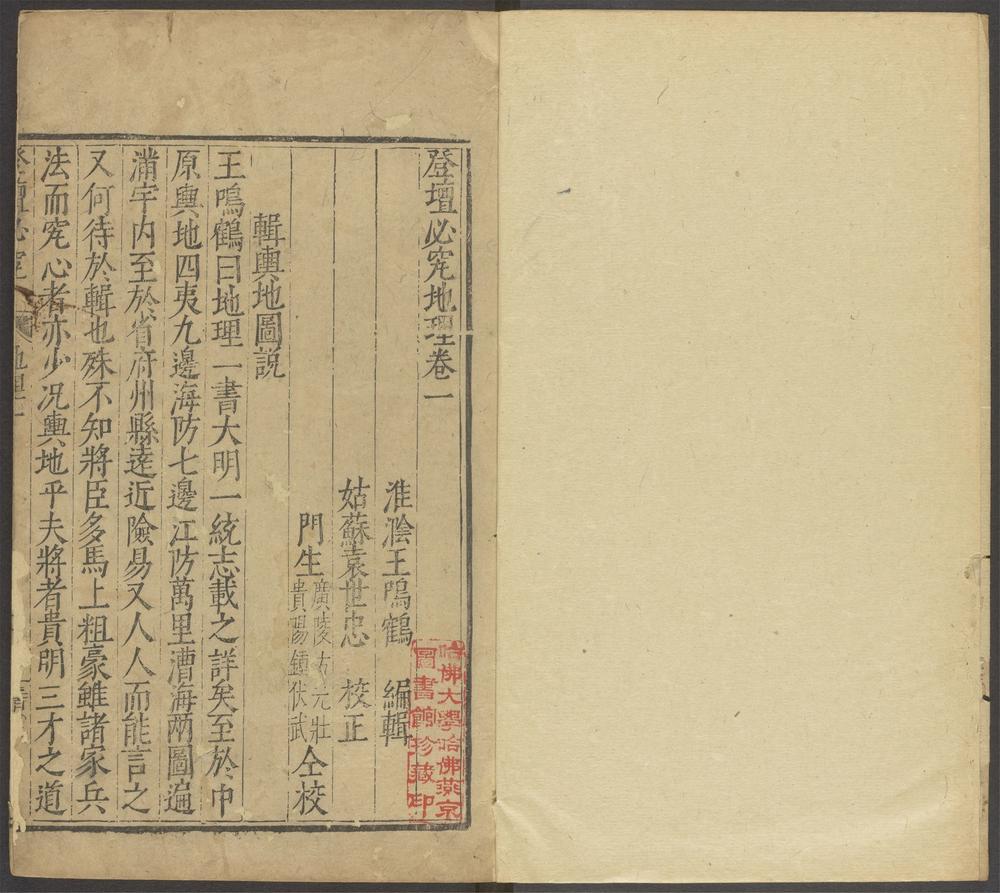 登壇必究地理卷一
淮隂王鳴鶴 編輯
姑蘇袁世忠 校正
門生 廣陵古元壯 貴陽鍾伏武 仝校
輯輿地圖説
王鳴鶴曰地理一書大明一統志載之詳矣至於中
原輿地四夷九邊海防七邊江防萬里漕海兩圖遍
滿宇内至於省府州縣逺近險易又人人而能言之
又何待於輯也殊不知將臣多馬上粗豪雖諸家兵
法而究心者亦少况輿地乎夫將者貴明三才之道
登壇必究
地理一
哈佛大學哈佛燕京
圖書館珍藏印